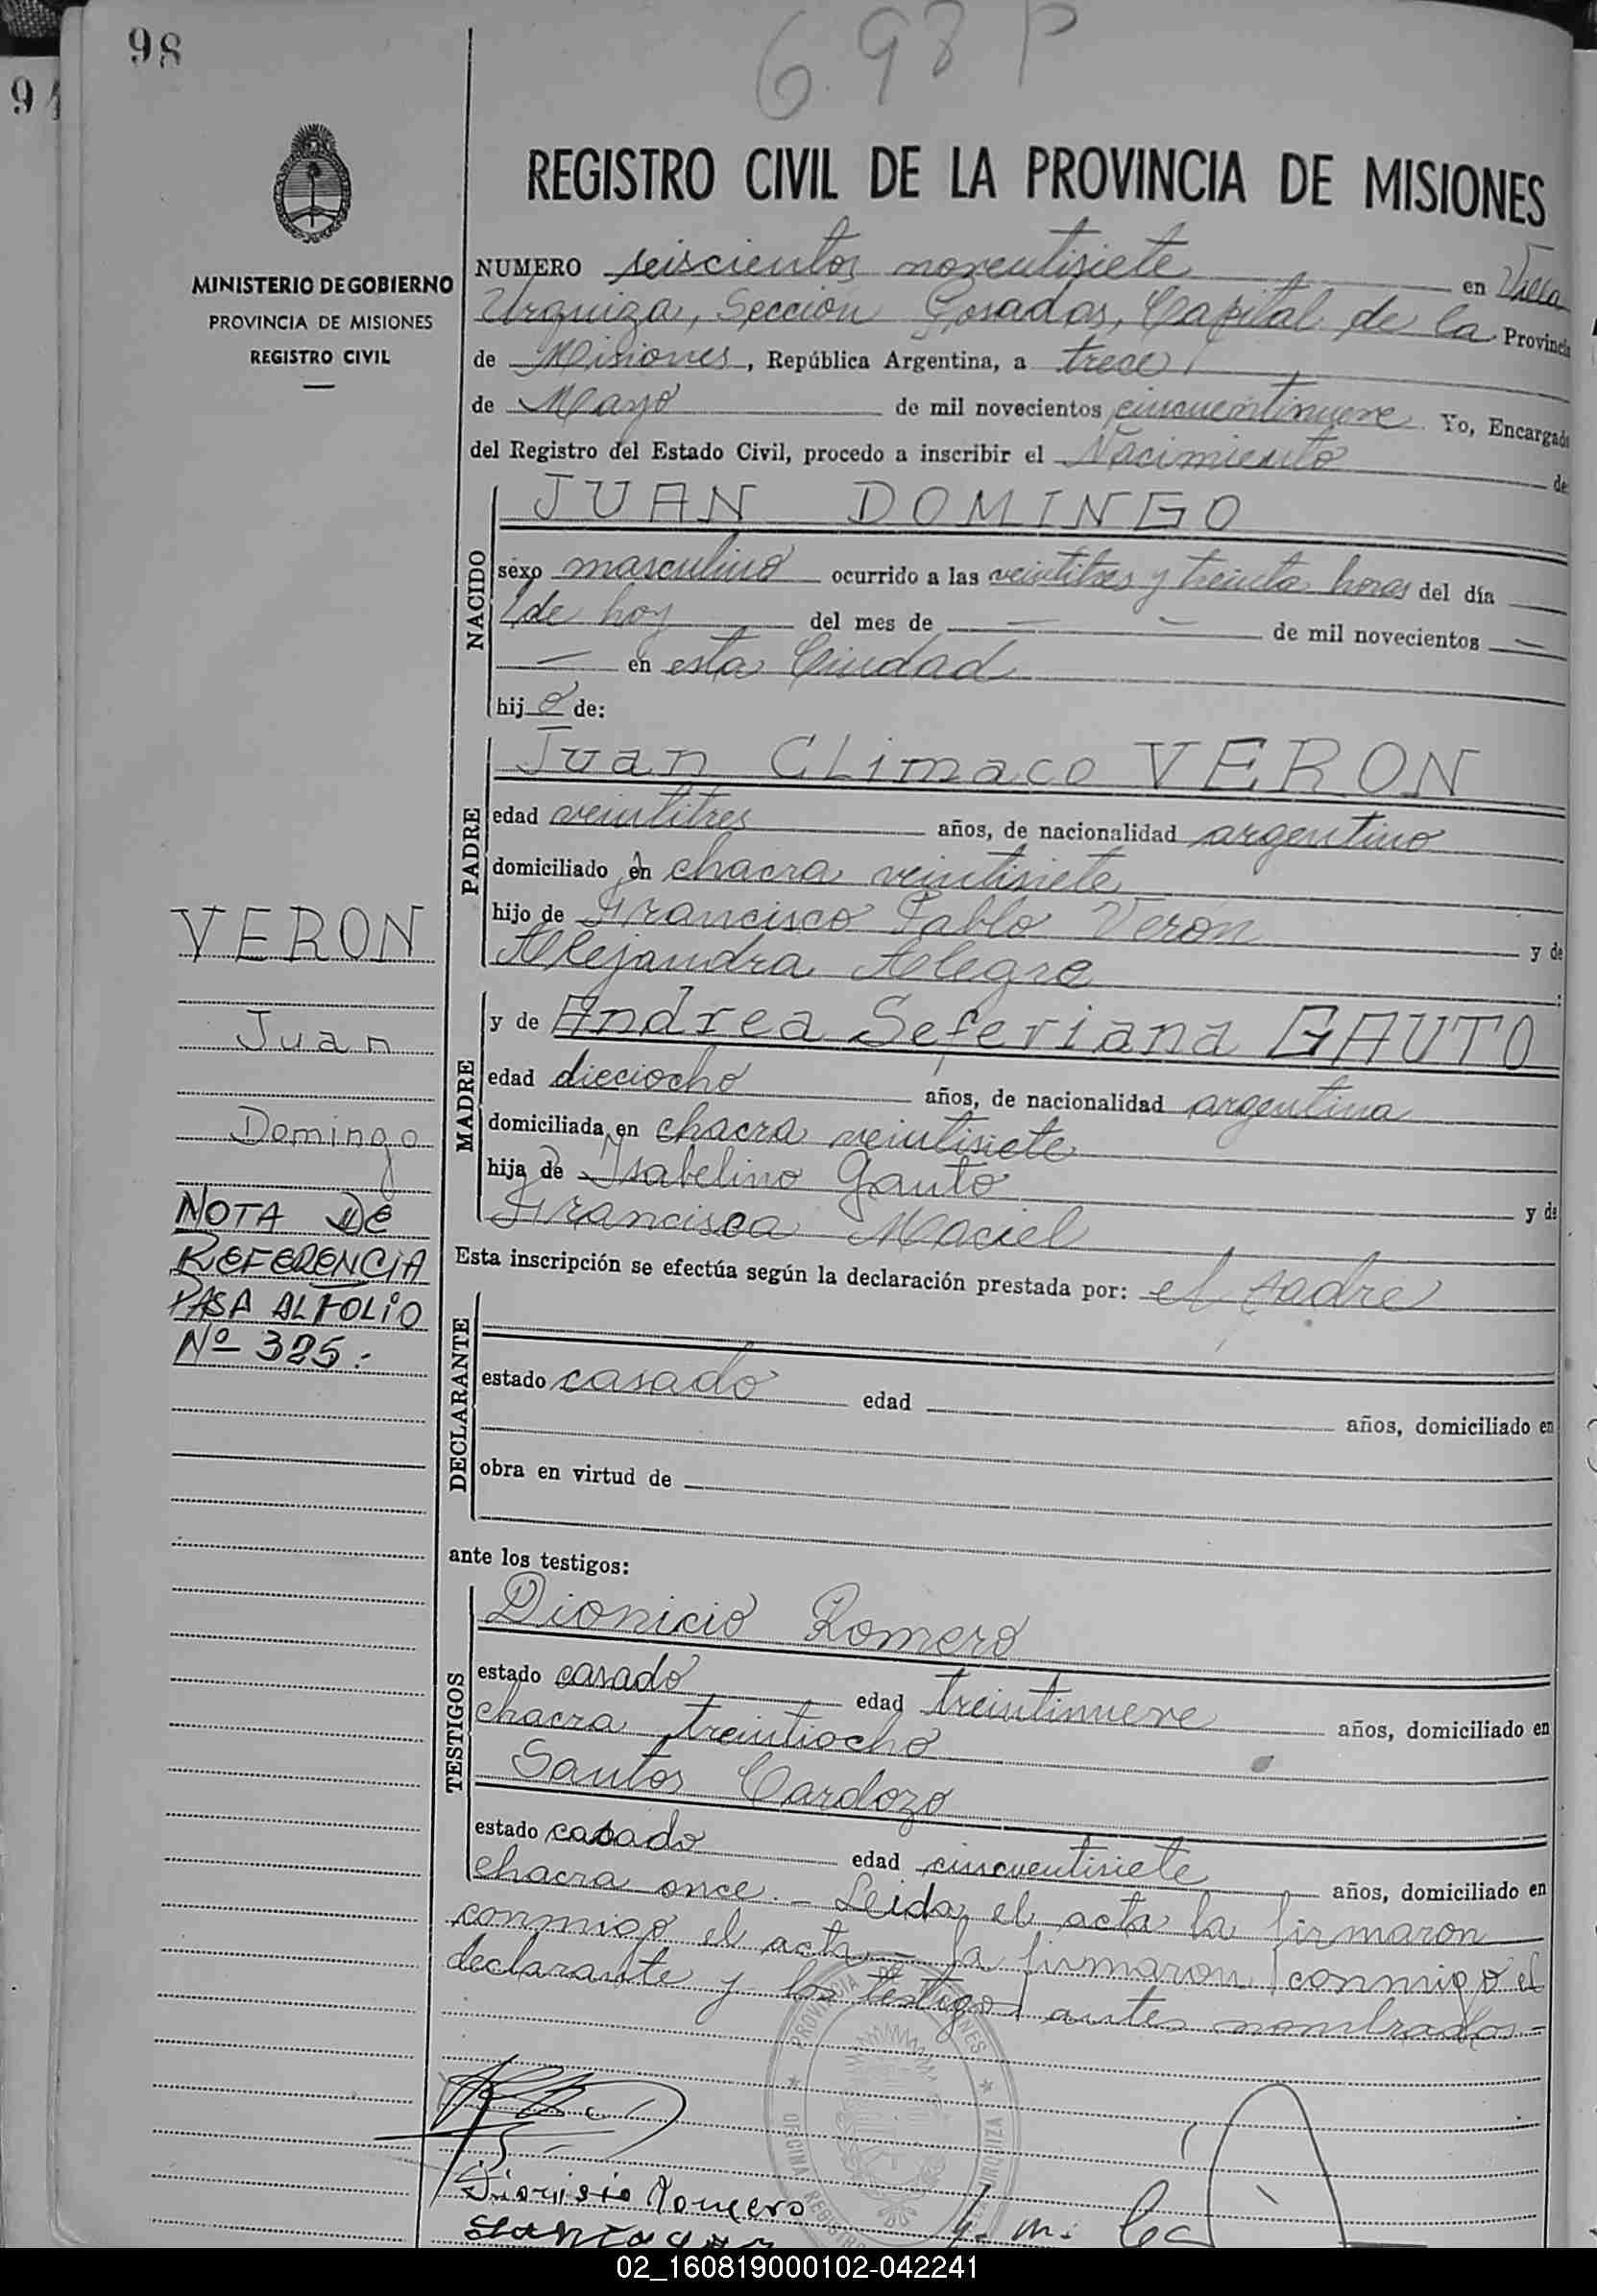 98
94
697 P
MINISTERIO DE GOBIERNO
PROVINCIA DE MISIONES
REGISTRO CIVIL
VERON
Juan
Domingo
NOTA DE
REFERENCIA
PASA AL FOLIO
Nº 385.-
REGISTRO CIVIL DE LA PROVINCIA DE MISIONES
NUMERO seiscientos noventisiete en Villa
Urquiza, Sección Posadas, Capital de la Provincia
de Misiones, República Argentina, a trece
de Mayo de mil novecientos cincuentinueve Yo, Encargado
del Registro del Estado Civil, procedo a inscribir el Nacimiento de
JUAN DOMINGO
NACIDO
sexo masculino ocurrido a las veintitres y treinta horas del día
de hoy del mes de — — de mil novecientos —
— en esta Ciudad
hijo de:
Juan CLimaco VERON
PADRE
edad veintitres años, de nacionalidad argentino
domiciliado en chacra veintisiete
hijo de Francisco Pablo Verón y de
Alejandra Alegre
MADRE
y de Andrea Seferiana GAUTO
edad dieciocho años, de nacionalidad argentina
domiciliada en chacra veintisiete
hija de Isabelino Gauto y de
Francisca Maciel
Esta inscripción se efectúa según la declaración prestada por: el padre
DECLARANTE
estado casado edad años, domiciliado en
obra en virtud de
ante los testigos:
TESTIGOS
Dionicio Romero
estado casado edad treintinueve años, domiciliado en
chacra treintiocho
Santos Cardozo
estado casado edad cincuentisiete años, domiciliado en
chacra once.- Leida el acta la firmaron
conmigo el acta — la firmaron conmigo el
declarante y los testigos antes nombrados.-
PROVINCIA DE MISIONES
OFICINA REGISTRO
URQUIZA
Dionisio Romero
02_160819000102-042241